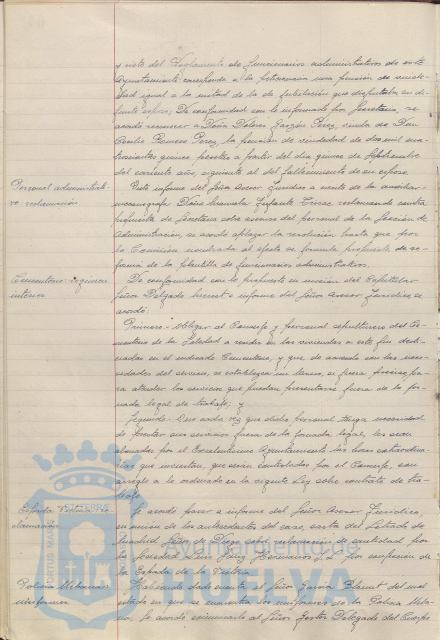 y visto del Reglamento de funcionarios administrativos de este
Ayuntamiento corresponde a la peticionaria una pensión de viude-
dad igual a la mitad de la de jubilación que disfrutaba su di-
funto esposo; De conformidad con lo informado por Secretaría, se
acordó reconocer a Doña Dolores Garzón Pérez, viuda de Don
Emilio Romero Pérez, la pensión de viudedad de dos mil
quince pesetas a partir del día quince de Septiembre
del corriente año, siguiente al del fallecimiento de su esposo.
Personal administrati-
vo reclamación
Visto informe del Señor Asesor Jurídico a escrito de la auxiliar
mecanógrafa Doña Manuela Infante reclamando contra
propuesta de Secretaría sobre ascenso del personal de la Sección de
Administración, se acordó aplazar la resolución hasta que por
la Comisión nombrada al efecto se formule propuesta de re-
forma de la plantilla de funcionarios administrativos.
Cementerio: régimen
interior
De conformidad con lo propuesto en moción del Capitular
Señor Delgado e informe del Señor Asesor Jurídico se
acordó:
Primero: Obligar al Conserje y personal sepulturero del Ce-
menterio de la Soledad a residir en las viviendas a este fin desti-
nadas en el indicado Cementerio, y que de acuerdo con las nece-
sidades del servicio, se establezca un turno, si fuera preciso pa-
ra atender los servicios que puedan presentarse fuera de la jor-
nada legal de trabajo; y
Segundo: Que cada vez que dicho personal tenga necesidad
de prestar sus servicios fuera de la jornada legal, les sean
abonadas por el Excelentísimo Ayuntamiento las horas extraordina-
rias que inviertan, que serán controladas por el Conserje, con
arreglo a lo ordenado en la vigente Ley sobre contrato de tra-
bajo.
Espada Victoria
clamación
Se acordó pasar a informe del Señor Asesor Jurídico,
en unión de los antecedentes del caso, carta del Letrado de
Madrid Señor de Diego sobre reclamación de cantidad por
la Sociedad Luis Hermanos S. L. por confección de
la Espada de la Victoria.
Policía Urbana:
uniformes
Habiendo dado cuenta el Señor García del mal
estado en que se encuentra los uniformes de la Policía Urba-
na, se acordó encomendar al Señor Gestor Delegado del Cuerpo
PORTUS MARIS
TERRAE
Ayuntamiento de
HUELVA